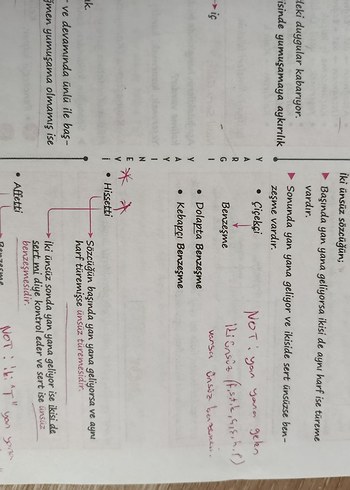 deki duygular kabarıyor.
isinde yumuşamaya aykırılık
iç
ık.
ve devamında ünlü ile baş-
ğmen yumuşama olmamış ise
YAYINEVİ
İki ünsüz sözcüğün;
Başında yan yana geliyorsa ikisi de aynı harf ise türeme
vardır.
Sonunda yan yana geliyor ve ikiside sert ünsüzse ben-
zeşme vardır.
Çiçekçi
Benzeşme
Dolapta Benzeşme
Kebapçı Benzeşme
NOT: yan yana gelen
iki ünsüz
varsa ünsüz benzeşmesi
Hissetti
Sözcüğün başında yan yana geliyorsa ve aynı
harf türemişse ünsüz türemesidir.
İki ünsüz sonda yan yana geliyor ise ikisi de
sert mi diye kontrol eder ve sert ise ünsüz
benzeşmesidir.
Affetti
Benzeşme
NOT: iki "T" yan yana